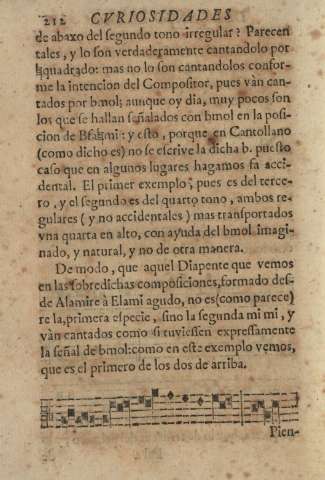 212 CVRIOSIDADES
de abaxo del segundo tono irregular? Parecen
tales, y lo son verdaderamente cantandolo por
♮quadrado: mas no lo son cantandolos confor-
me la intencion del Compositor, pues vàn can-
tados por bmol; aunque oy dia, muy pocos son
los que se hallan señalados con bmol en la posi-
cion de Bfa♮mi: y esto, porque en Cantollano
(como dicho es) no se escrive la dicha b. puesto
caso que en algunos lugares hagamos fa acci-
dental. El primer exemplo, pues es del terce-
ro, y el segundo es del quarto tono, ambos re-
gulares (y no accidentales) mas transportados
vna quarta en alto, con ayuda del bmol imagi-
nado, y natural, y no de otra manera.
De modo, que aquel Diapente que vemos
en las sobredichas composiciones, formado des-
de Alamire à Elami agudo, no es (como parece)
re la, primera especie, sino la segunda mi mi, y
vàn cantados como si tuviessen expressamente
la señal de bmol: como en este exemplo vemos,
que es el primero de los dos de arriba.
Pien-